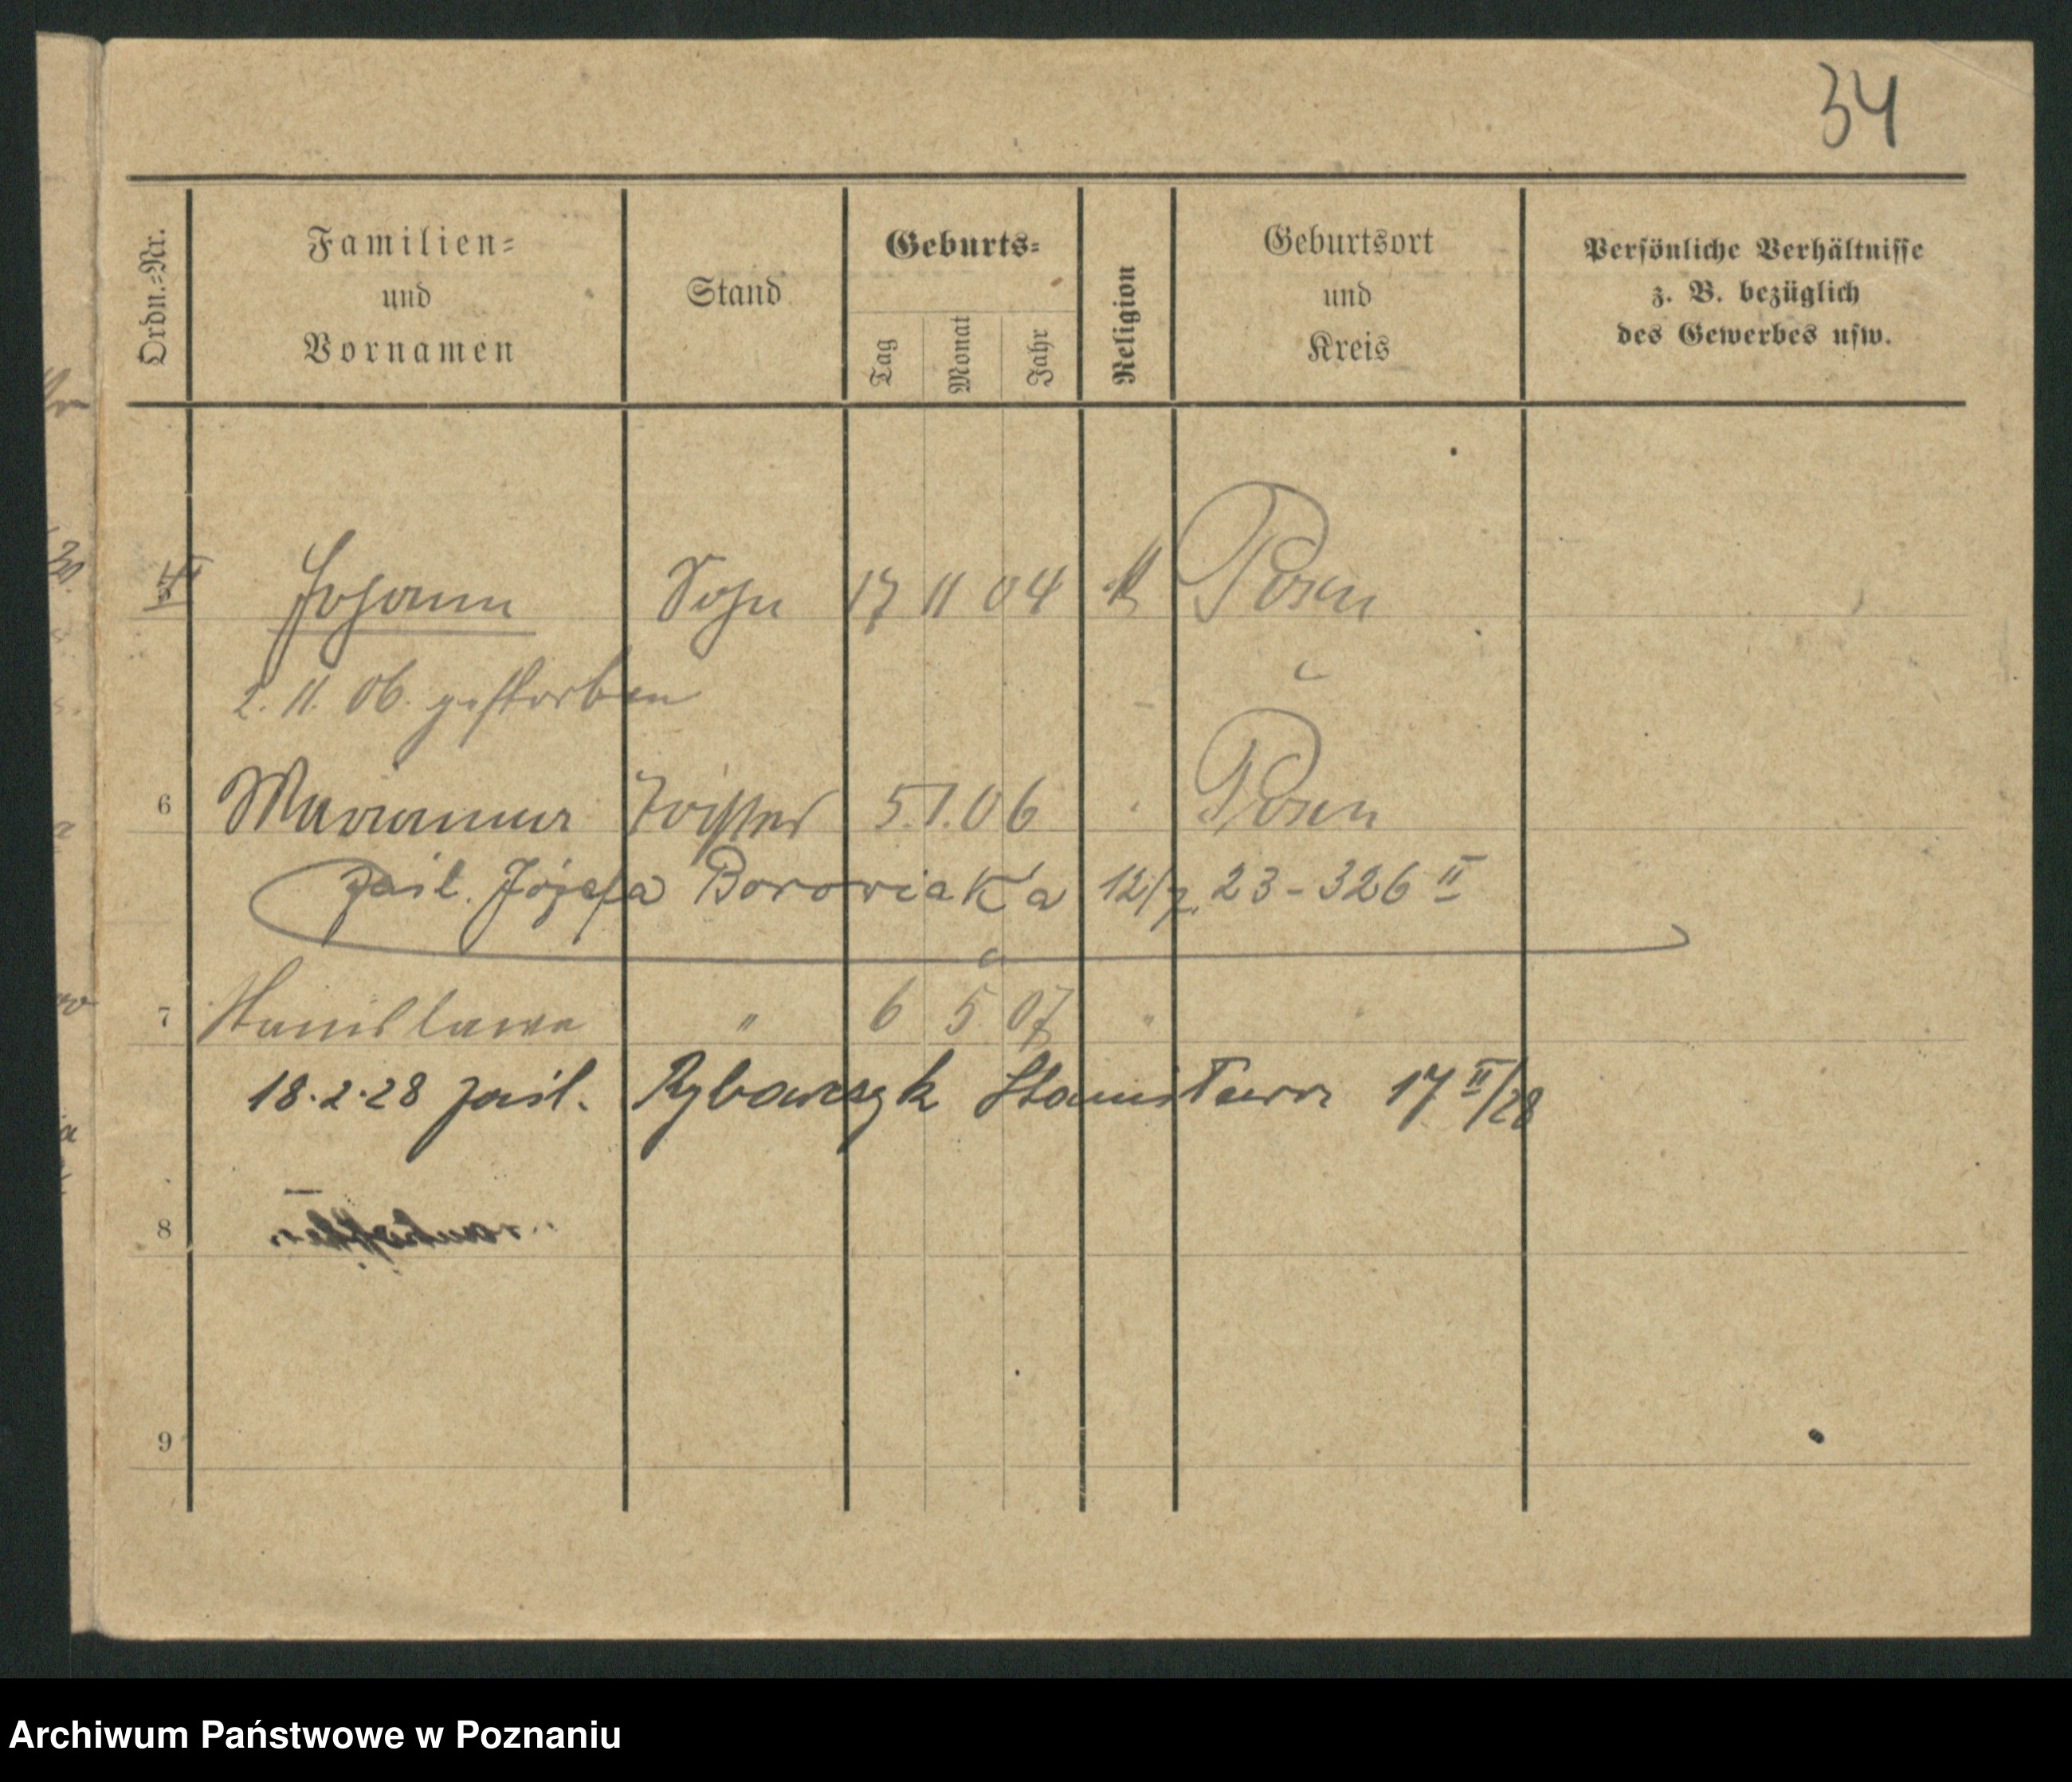 34
Ordn.-Nr.
Familien-
und
Vornamen
Stand
Geburts-
Tag
Monat
Jahr
Religion
Geburtsort
und
Kreis
Persönliche Verhältnisse
z. B. bezüglich
des Gewerbes usw.
Johann Sohn 17 11 04 Posen
2. 11. 06. gestorben
6 Marianna Tochter 5.1.06 Posen
Zaśl. Józefa Borowiaka 12/7. 23 - 326 II
7 Stanislawa " 6 5 07 "
18.2.28 zaśl. Rybarczyk Stanisława 17 II/28
8
9
Archiwum Państwowe w Poznaniu